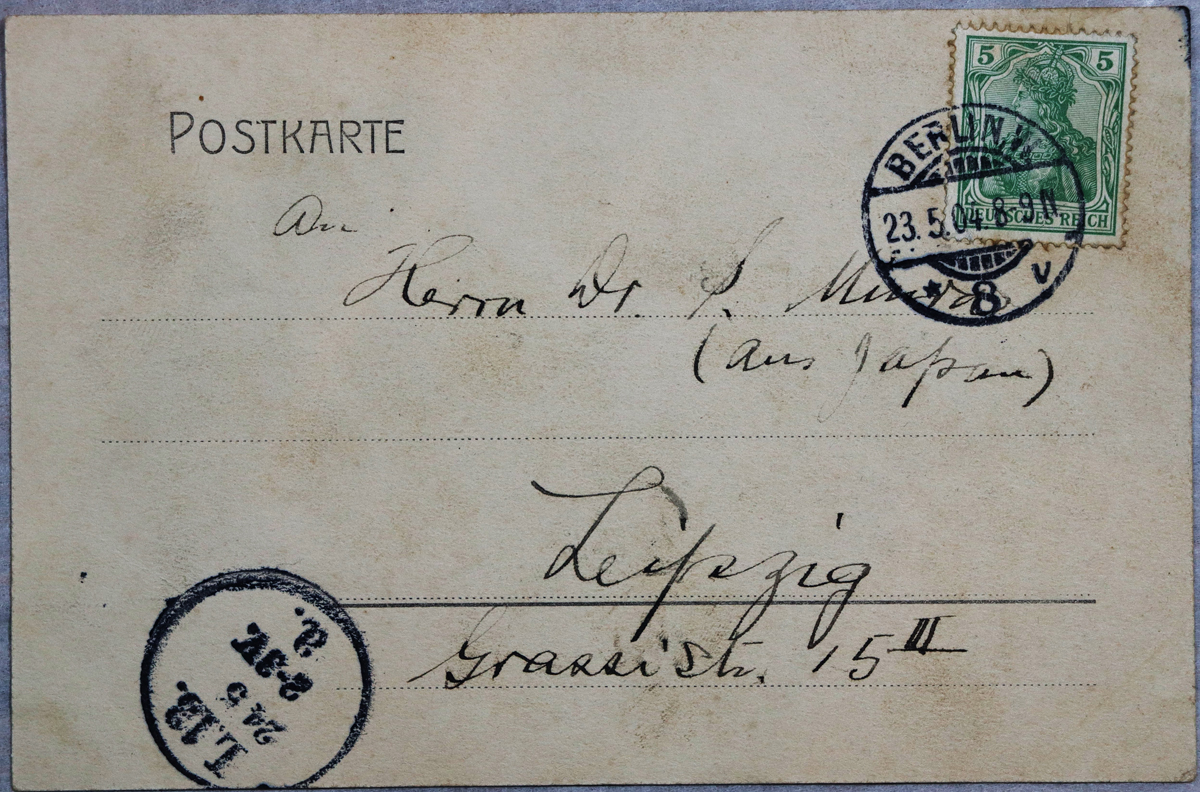 POSTKARTE
5 5
DEUTSCHES REICH
BERLIN.W.
23.5.04.8-9N
* 8 v
An
Herrn Dr. S. Miura
(aus Japan)
Leipzig
Grassistr. 15 III
L.13.
24 5